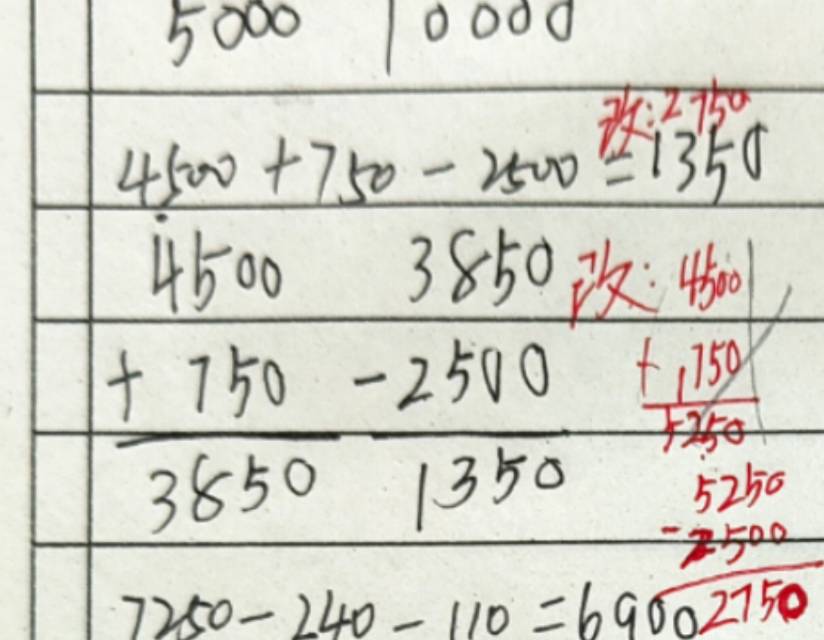 5000 10000
改:2750
4500+750-2500=1350
4500 3850 改: 4500
+ 750 -2500 + 750
5250
3850 1350 5250
-2500
7250-240-110=6900 2750